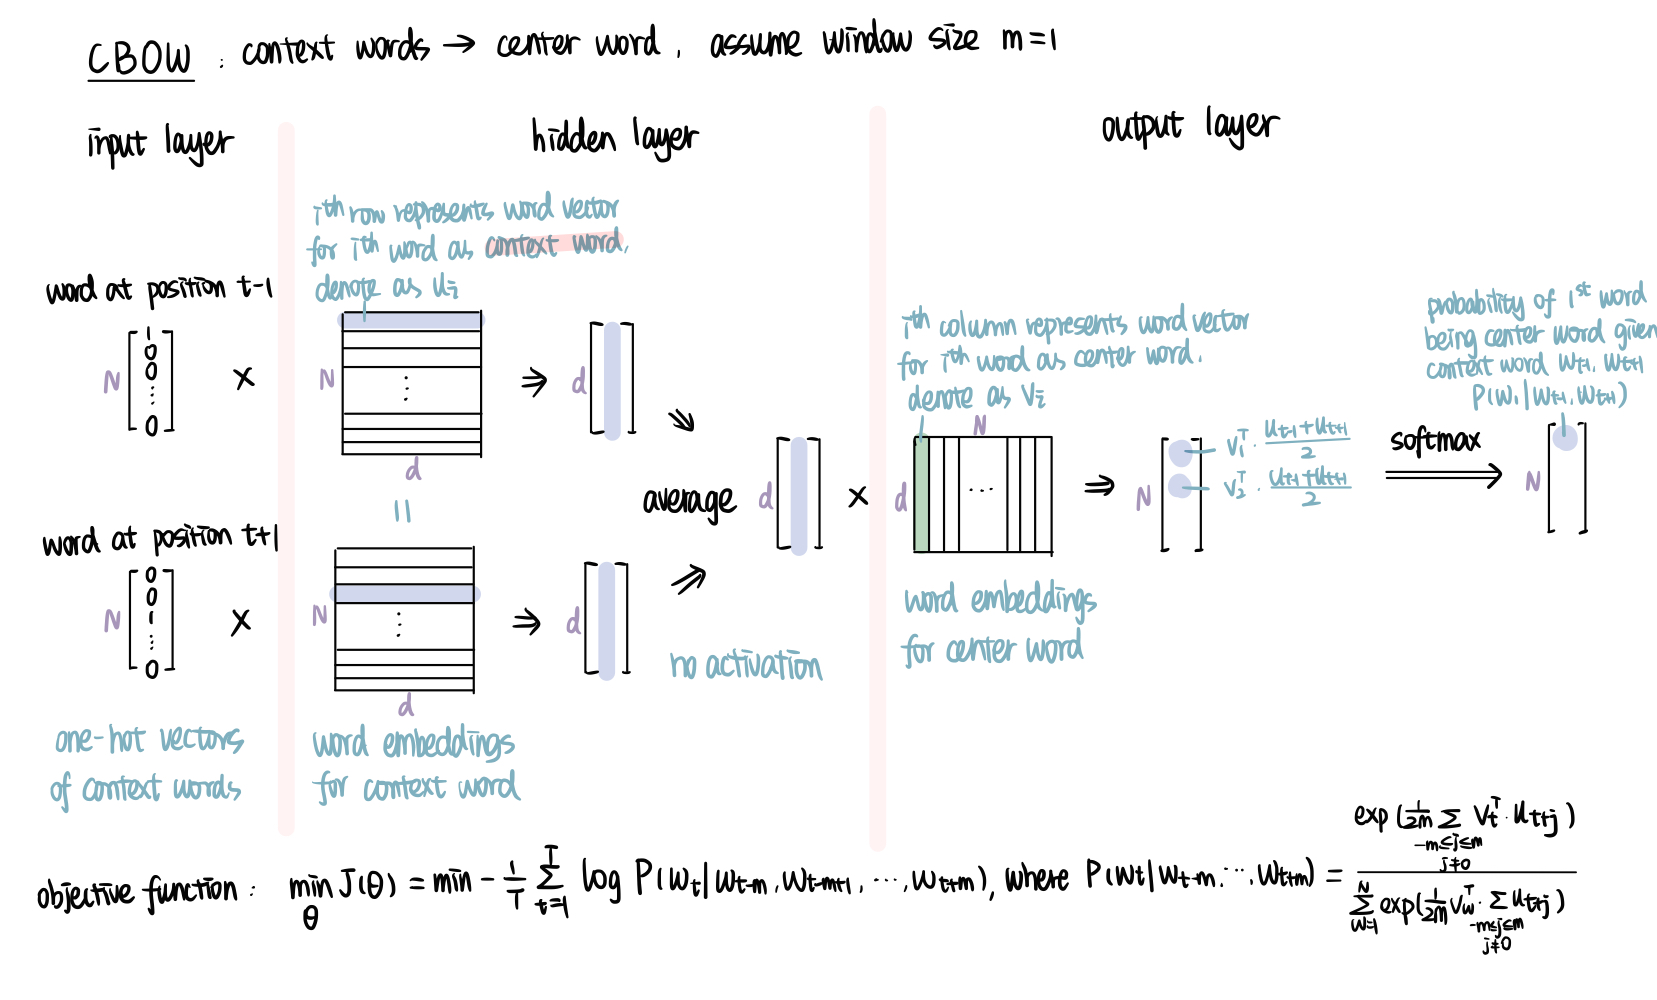 CBOW : context words → center word, assume window size m=1
input layer
hidden layer
output layer
iᵗʰ row represents word vector
for iᵗʰ word as context word,
denote as uᵢ
word at position t-1
N [1 0 0 ⋮ 0] ×
N
⋮
d
⇒ d
=
word at position t+1
N [0 0 1 ⋮ 0] ×
N
⋮
d
⇒ d
one-hot vectors
of context words
word embeddings
for context word
⇒
average
⇒
no activation
d
×
iᵗʰ column represents word vector
for iᵗʰ word as center word.
denote as vᵢ
N
d
...
word embeddings
for center word
⇒ N
v₁ᵀ · (uₜ₋₁ + uₜ₊₁)/2
v₂ᵀ · (uₜ₋₁ + uₜ₊₁)/2
softmax
probability of 1ˢᵗ word
being center word given
context word wₜ₋₁, wₜ₊₁
P(w₁ | wₜ₋₁, wₜ₊₁)
N
objective function : min_θ J(θ) = min - 1/T Σ_{t=1}^{T} log P(wₜ | wₜ₋ₘ, wₜ₋ₘ₊₁, ..., wₜ₊ₘ), where P(wₜ | wₜ₋ₘ, ..., wₜ₊ₘ) = exp(1/2m Σ_{-m≤j≤m, j≠0} vₜᵀ · uₜ₊ⱼ) / Σ_{w=1}^{N} exp(1/2m v_wᵀ · Σ_{-m≤j≤m, j≠0} uₜ₊ⱼ)